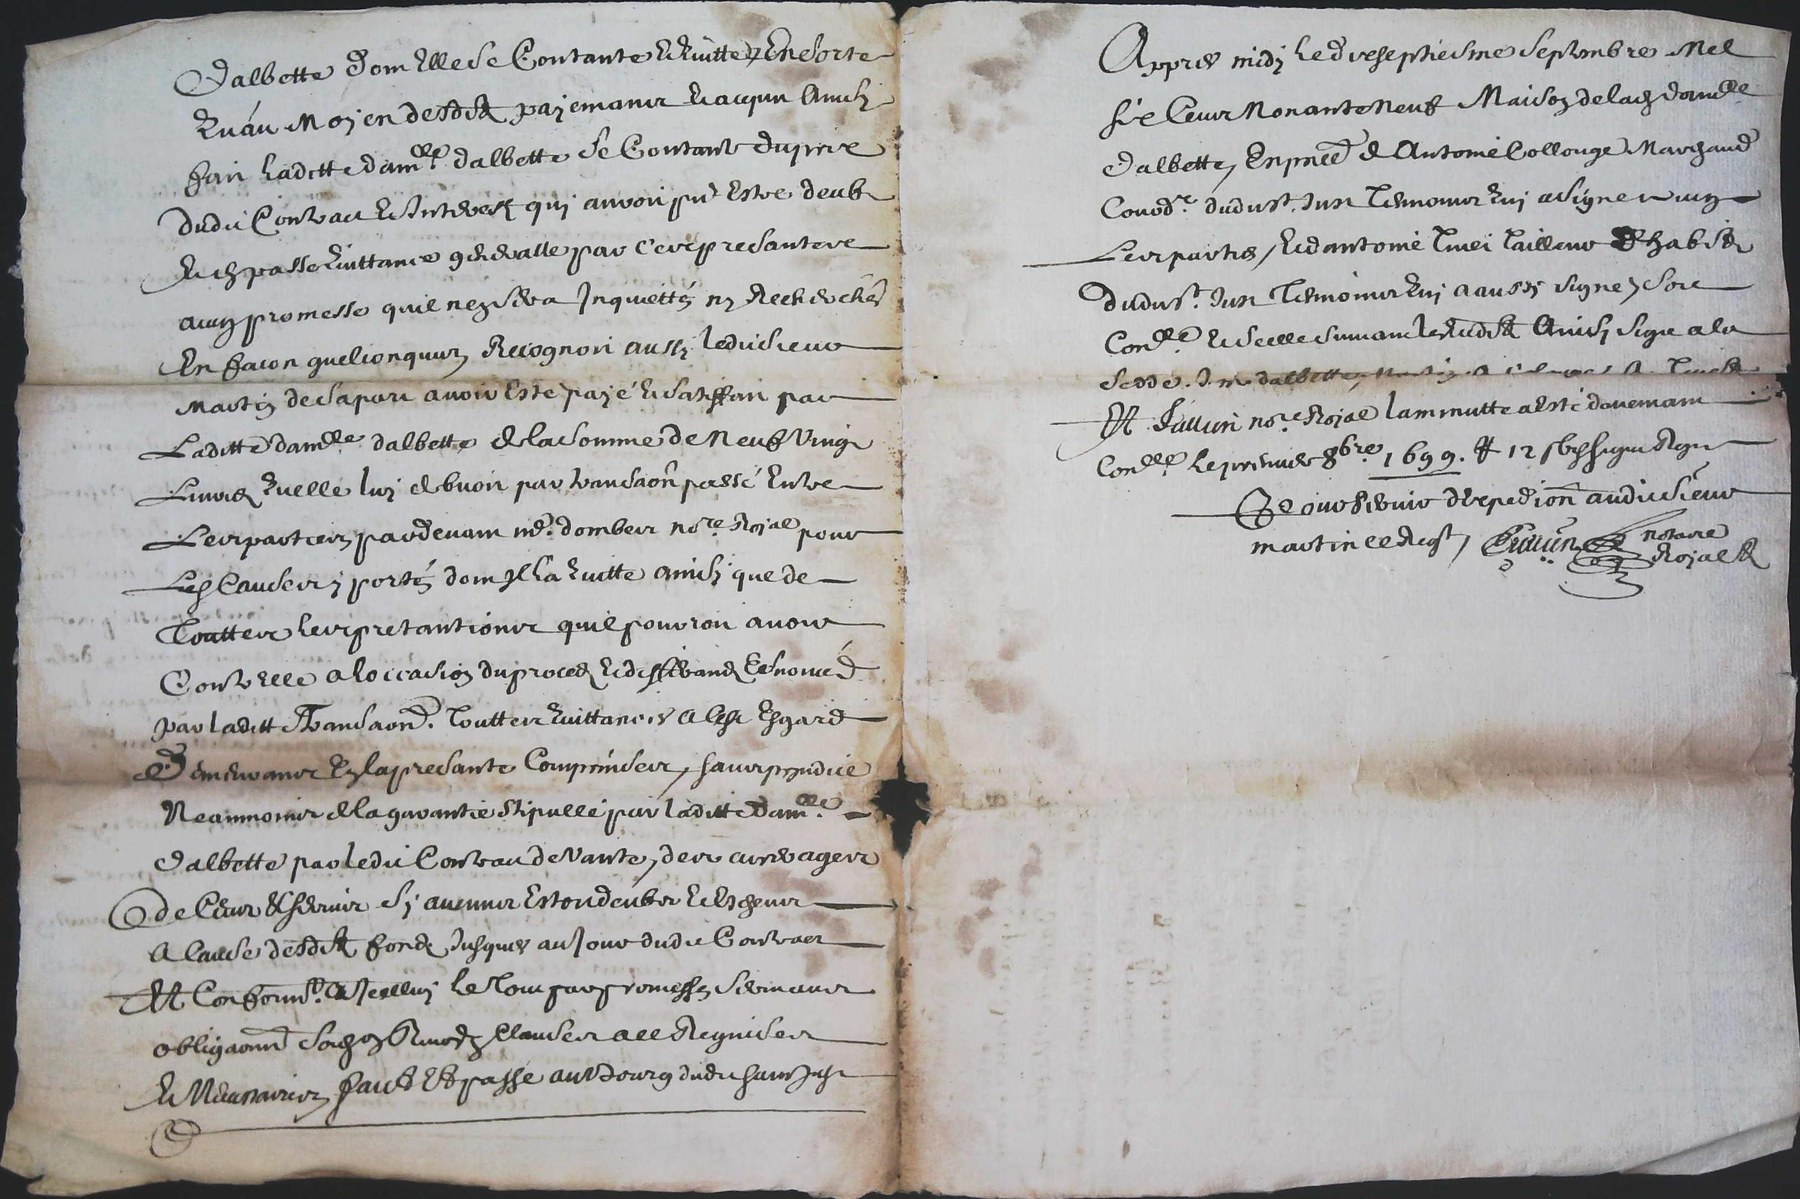 Dalbette dont Elle se Contante & Quitte, En sorte
Qu'au Moyen desdts payemants & acquit Ainsi
fait Laditte damlle dalbette se Contante du prix
Dudit Contract & Interests quj auroit pu Estre deub
& En passe Quittance generalle par Ces presantes
avec promesse quil ne sera Inquietté ny Recherché
En facon quelconque, Recognoit aussi ledit sieur
Martin de sa part avoir Esté payé & satisfait par
Laditte damlle dalbette de la somme de Neuf Vingt
Livres Quelle luj debvoit par transaon passé Entre
Les parties, pardevant Me dombes nore Royal pour
Les Causes y portés dont Il la Quitte ainsi que de
Touttes Les pretantions quil pourroit avoir
Contre Elle a loccasion du proces & differands
par laditte transaon. Touttes Quittances a Cest Esgard
Demeurants En la presante Comprinses, sans prejudice
Neanmoins de la garantie stipullé par laditte damlle
Dalbette par ledit Contract de Vante, des arrerages
De Cens & servis sy aucuns Estoient deubs & Escheus
A Cause desdts fonds Jusques au Jour dudit Contract
Et Conformt a Icelluj Le Tout par promesses serments
obligaons Clauses a ce Requises
& Necessaires, fait & passé au bourg dudit saint Just
Appres midj Le dixseptiesme septembre Mil
six Cens Nonante Neuf Maison de lad. damlle
Dalbette, En pnce de Antoine Collonge Marchand
Cordr dudt st. Just Tesmoint Quj a signé avec
Les parties, & dantoine Tailleur dhabits
dudt st. Just Tesmoint Quj a aussy signé, soit
Conllé & scellé suivant les Edits Ainsi signé a la
Cedde. dalbette, Martin, A. Collonge, A.
Et Jullin nore Royal la minutte a esté deuement
Conllé Le premier 8bre 1699. Et 12 s signé
Et our servir dExpedion audit sieur
martin ce Reqt, Jullin notaire
Royal